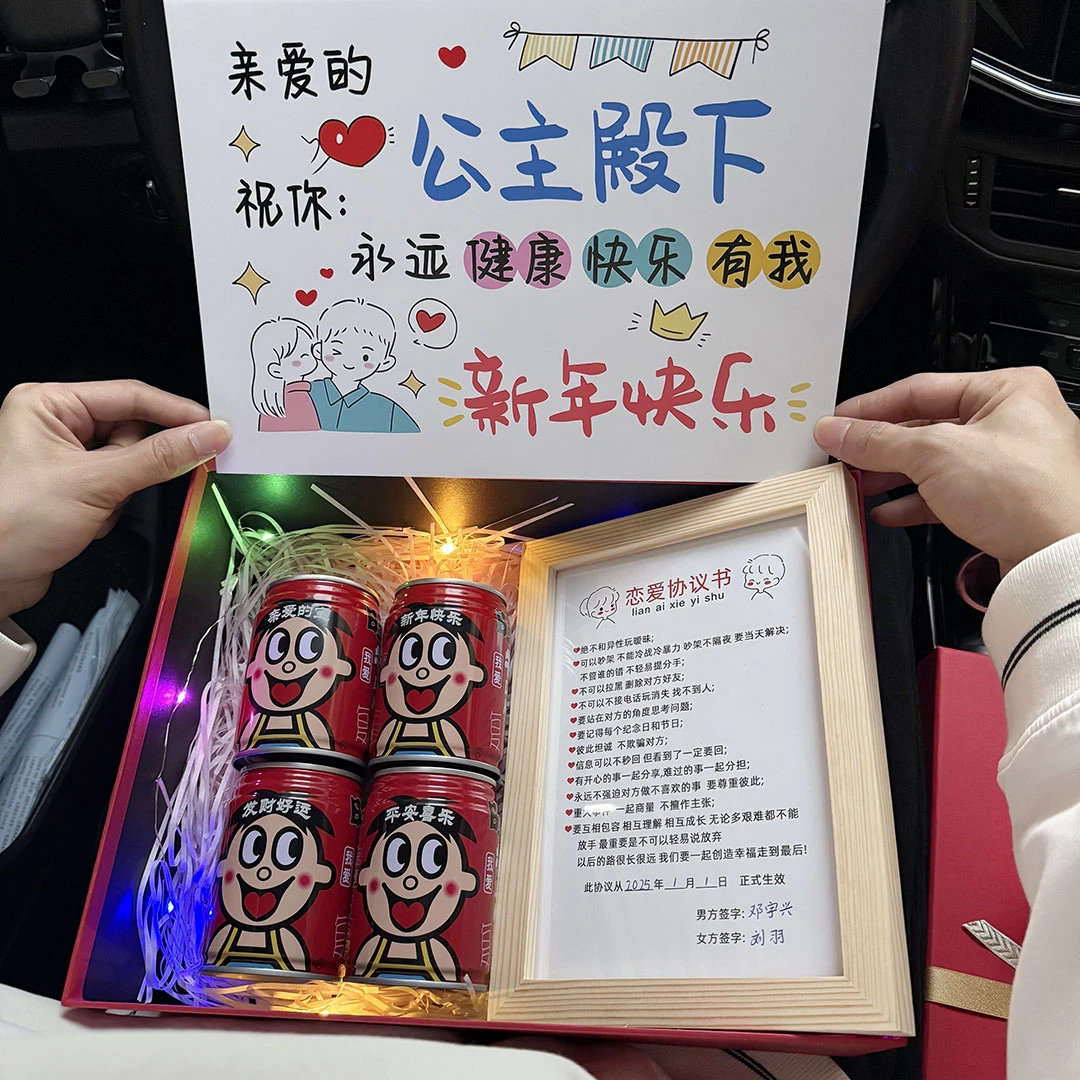 亲爱的
公主殿下
祝你:
永远 健康 快乐 有我
新年快乐
亲爱的
新年快乐
我爱
我爱
发财好运
平安喜乐
我爱
我爱
恋爱协议书
lian ai xie yi shu
绝不和异性玩暧昧;
可以吵架 不能冷战冷暴力 吵架不隔夜 要当天解决;
不管谁的错 不轻易提分手;
不可以拉黑 删除对方好友;
不可以不接电话玩消失 找不到人;
要站在对方的角度思考问题;
要记得每个纪念日和节日;
彼此坦诚 不欺骗对方;
信息可以不秒回 但看到了一定要回;
有开心的事一起分享,难过的事一起分担;
永远不强迫对方做不喜欢的事 要尊重彼此;
重大事件 一起商量 不擅作主张;
要互相包容 相互理解 相互成长 无论多艰难都不能
放手 最重要是不可以轻易说放弃
以后的路很长很远 我们要一起创造幸福走到最后!
此协议从2025年1月1日 正式生效
男方签字: 邓宇兴
女方签字: 刘羽